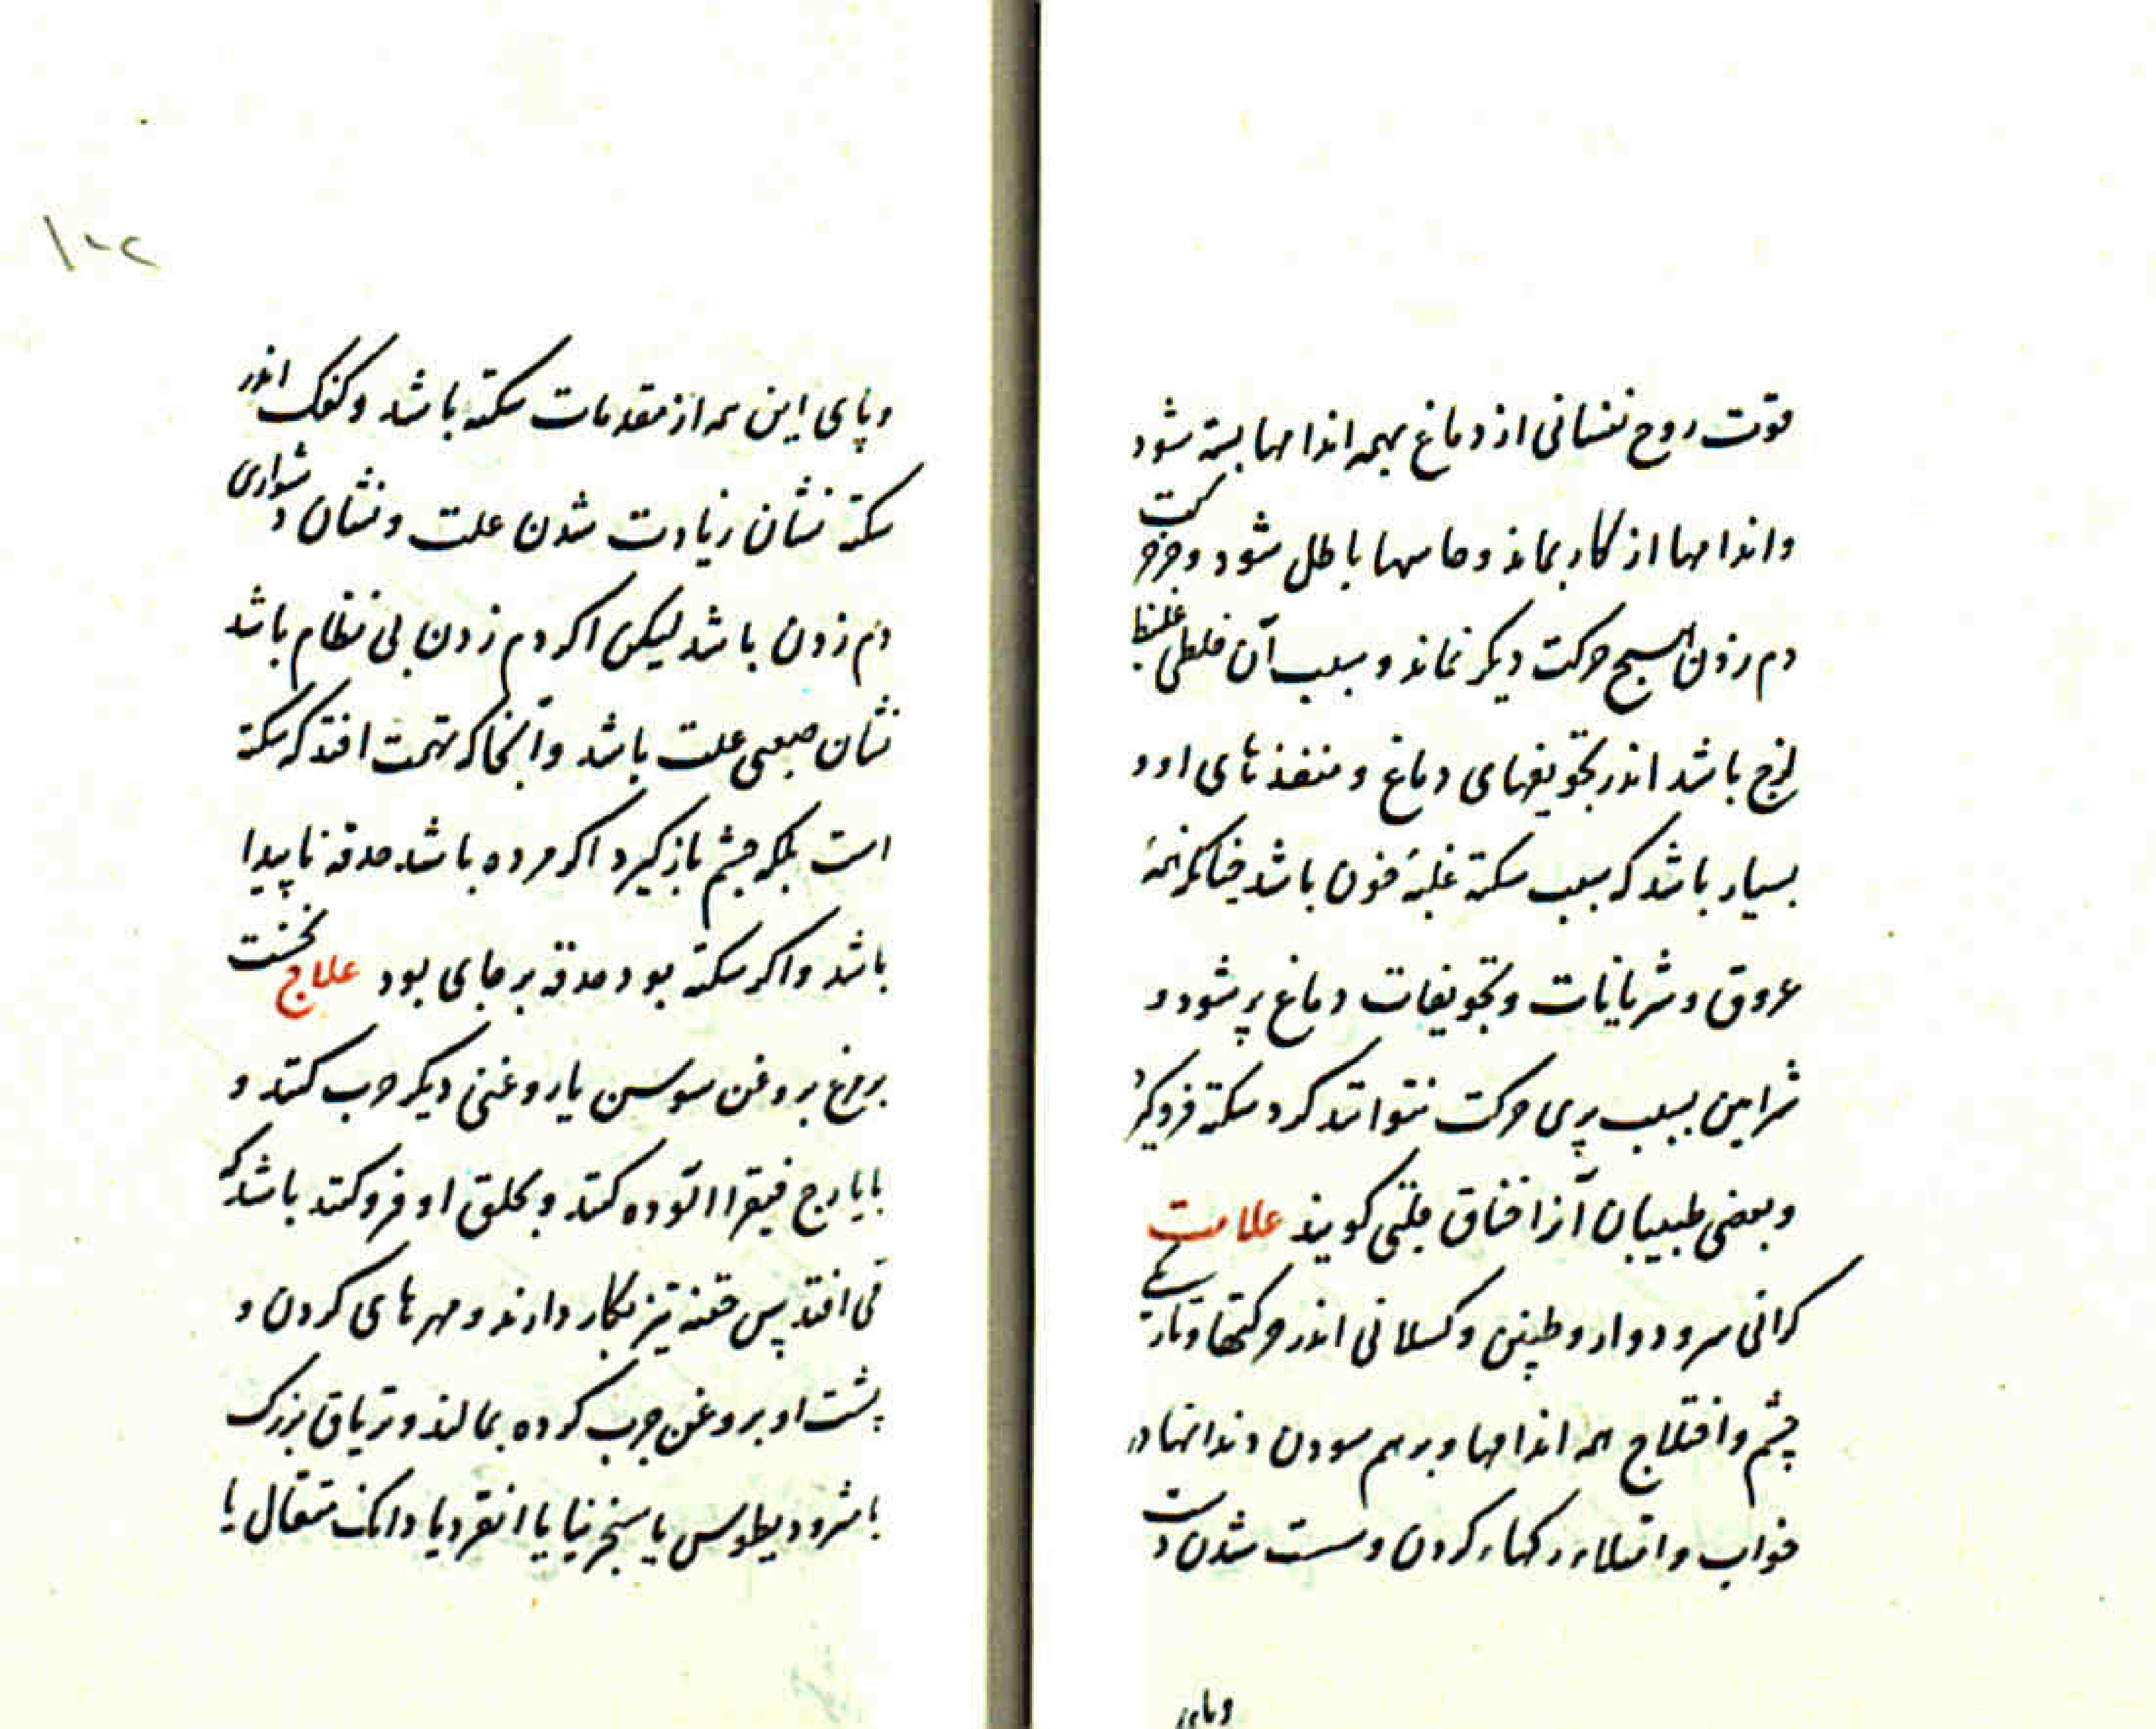 قوت روح نفسانی از دماغ بهمه اندامها بسته شود
واندامها از کار بماند و حاسها باطل شود و جز حرکت
دم زدن هیچ حرکت دیگر نماند و سبب آن خلطی غلیظ
لزج باشد اندر تجویفهای دماغ و منفذ های او و
بسیار باشد که سبب سکته غلبهٔ خون باشد چنانکه همهٔ
عروق و شریانات و تجویفات دماغ پر شود و
شرایین بسبب پری حرکت نتوانند کرد و سکته فرو گیرد
و بعضی طبیبان آنرا خناق قلبی گویند علامت
کرانی سر و دوار و طنین و کسلانی اندر حرکتها و تاریکی
چشم و اختلاج همه اندامها و برهم سودن دندانها در
خواب و امتلاء رکهاء کردن و سست شدن دست
وپای
۱۰۲
وپای این همه از مقدمات سکته باشد و کفک اندر
سکته نشان زیادت شدن علت و نشان دشواری
دم زدن باشد لیکن اکر دم زدن بی نظام باشد
نشان صعبی علت باشد و آنجا که تهمت افتد که سکته
است پلک چشم باز گیرد اکر مرده باشد حدقه ناپیدا
باشد واکر سکته بود حدقه بر جای بود علاج نخست
پر مرغ بروغن سوسن یا روغنی دیکر چرب کنند و
بایارج فیقرا آلوده کنند و بحلق او فرو کنند باشد که
قی افتد پس حقنه تیز بکار دارند و مهرهای کردن و
پشت او بروغن چرب کرده بمالند و تریاق بزرک
یا مثرودیطوس یا سنجرنیا یا انقردیا دانک مثقال یا